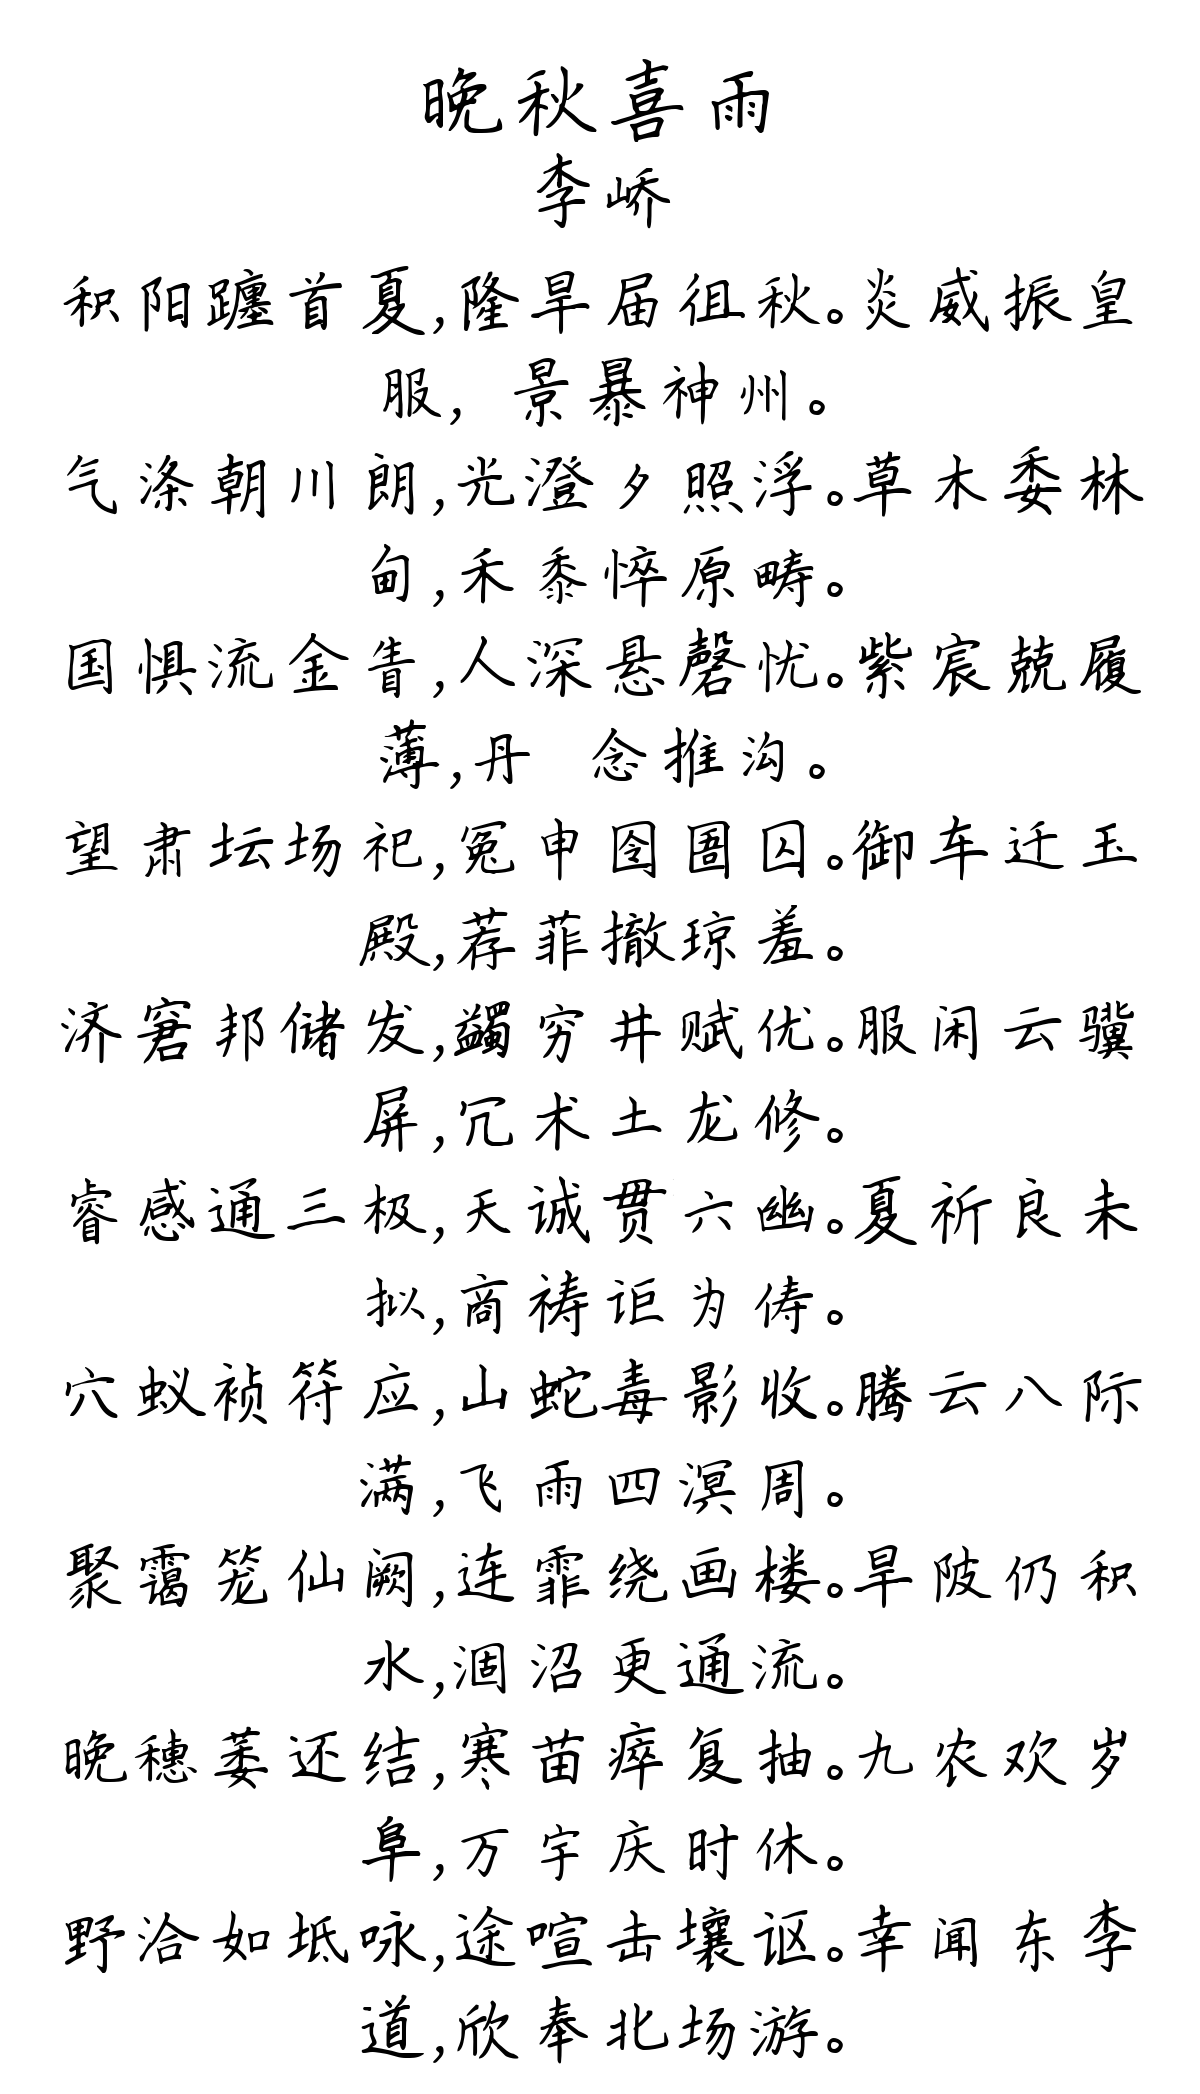 晚秋喜雨
李峤
积阳躔首夏,隆旱届徂秋。炎威振皇
服, 景暴神州。
气涤朝川朗,光澄夕照浮。草木委林
甸,禾黍悴原畴。
国惧流金眚,人深悬磬忧。紫宸兢履
薄,丹 念推沟。
望肃坛场祀,冤申囹圄囚。御车迁玉
殿,荐菲撤琼羞。
济窘邦储发,蠲穷井赋优。服闲云骥
屏,冗术土龙修。
睿感通三极,天诚贯六幽。夏祈良未
拟,商祷讵为俦。
穴蚁祯符应,山蛇毒影收。腾云八际
满,飞雨四溟周。
聚霭笼仙阙,连霏绕画楼。旱陂仍积
水,涸沼更通流。
晚穗萎还结,寒苗瘁复抽。九农欢岁
阜,万宇庆时休。
野洽如坻咏,途喧击壤讴。幸闻东李
道,欣奉北场游。